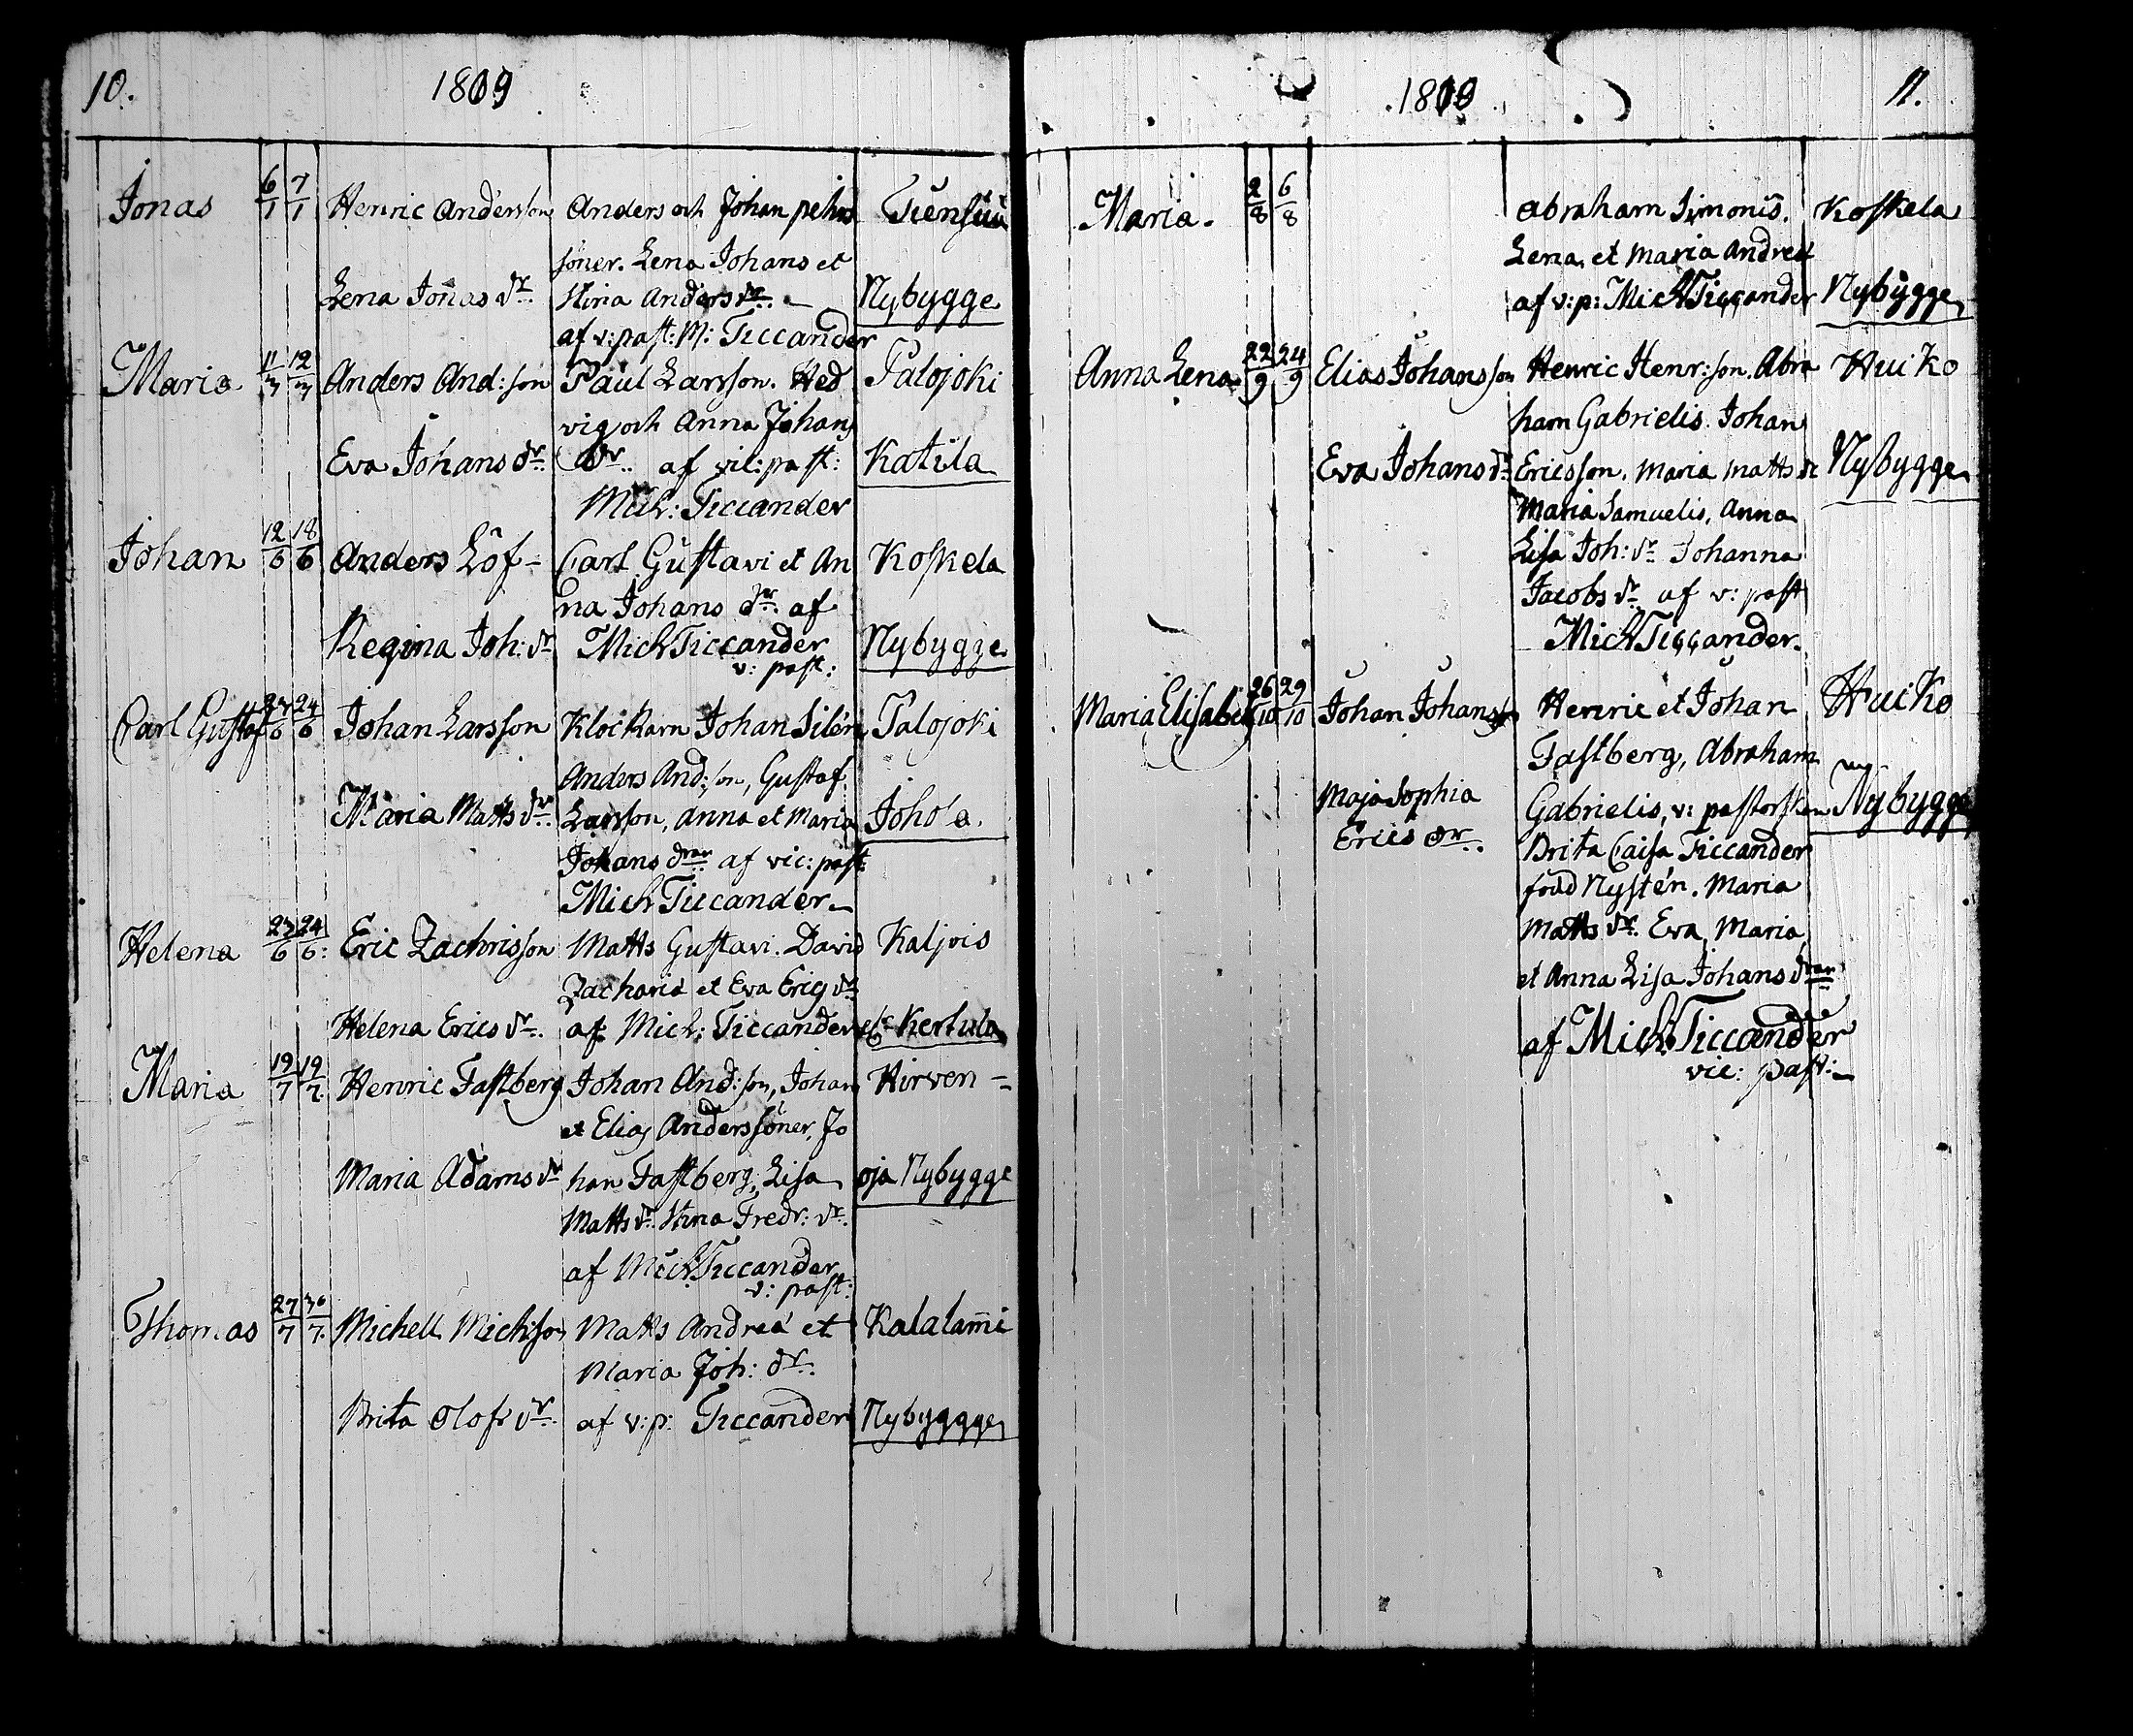 10. 1809
Jonas 6/1 7/1 Henric Andersson Anders och Johan pehrs
söner. Lena Johans et
Lena Jonas dr. Stina Anders dr. Nybygge
af v: past: M: Ticcander
Maria 11/3 12/3 Anders And:son Paul Larsson. Hed Palojoki
vig och Anna Johans
Eva Johans dr. dr. af vic: past: Katila
Mich: Ticcander
Johan 12/6 18/6 Anders Löf Carl Gustavi et An Koskela
na Johans dr. af
Regina Joh: dr. Mich Ticcander Nybygge
v: past:
Carl Gustaf 23/6 24/6 Johan Larsson Klockarn Johan Silén Palojoki
Anders And:son, Gustaf
Maria Matts dr. Larsson, Anna et Maria Johola.
Johans dran af vic: past:
Mich Ticcander
Helena 23/6 24/6 Eric Zachrisson Matts Gustavi. David Kaljois
Zachariæ et Eva Eric dr.
Helena Erics dr. af Mich: Ticcander Kertula
Maria 19/7 19/7 Henric Fastberg Johan And:son, Johan Hirven-
et Elias Anderssöner, Jo
Maria Adams dr han Fastberg, Lisa oja Nybygge
Matts dr. Stina Fredr: dr.
af Mich Ticcander
v: past:
Thomas 27/7 30/7 Michell Mich:son Matts Andreæ et Kalalam̄i
Maria Joh: dr.
Brita Olofs dr. af v: p: Ticcander Nybyggge
1809 11.
Maria. 2/8 6/8 Abraham Simonis. Koskela
Lena et Maria Andreæ
af v: p: Mich Ticcander Nybygge
Anna Lena 22/9 24/9 Elias Johansson Henric Henr:son. Abra Huiko
ham Gabrielis. Johan
Eva Johans dr. Ericsson. Maria Matts dr Nybygge
Maria Samuelis, Anna
Lisa Joh: dr. Johanna
Jacobs dr. af v: past
Mich Ticcander.
Maria Elisabeth 26/10 29/10 Johan Johansson Henric et Johan Huiko
Fastberg, Abraham
Maja Sophia Gabrielis, v: pastorskan Nybygge
Erics dr. Brita Caisa Ticcander
född Nystén. Maria
Matts dr. Eva, Maria
et Anna Lisa Johans dran
af Mich Ticcander
vic: past: